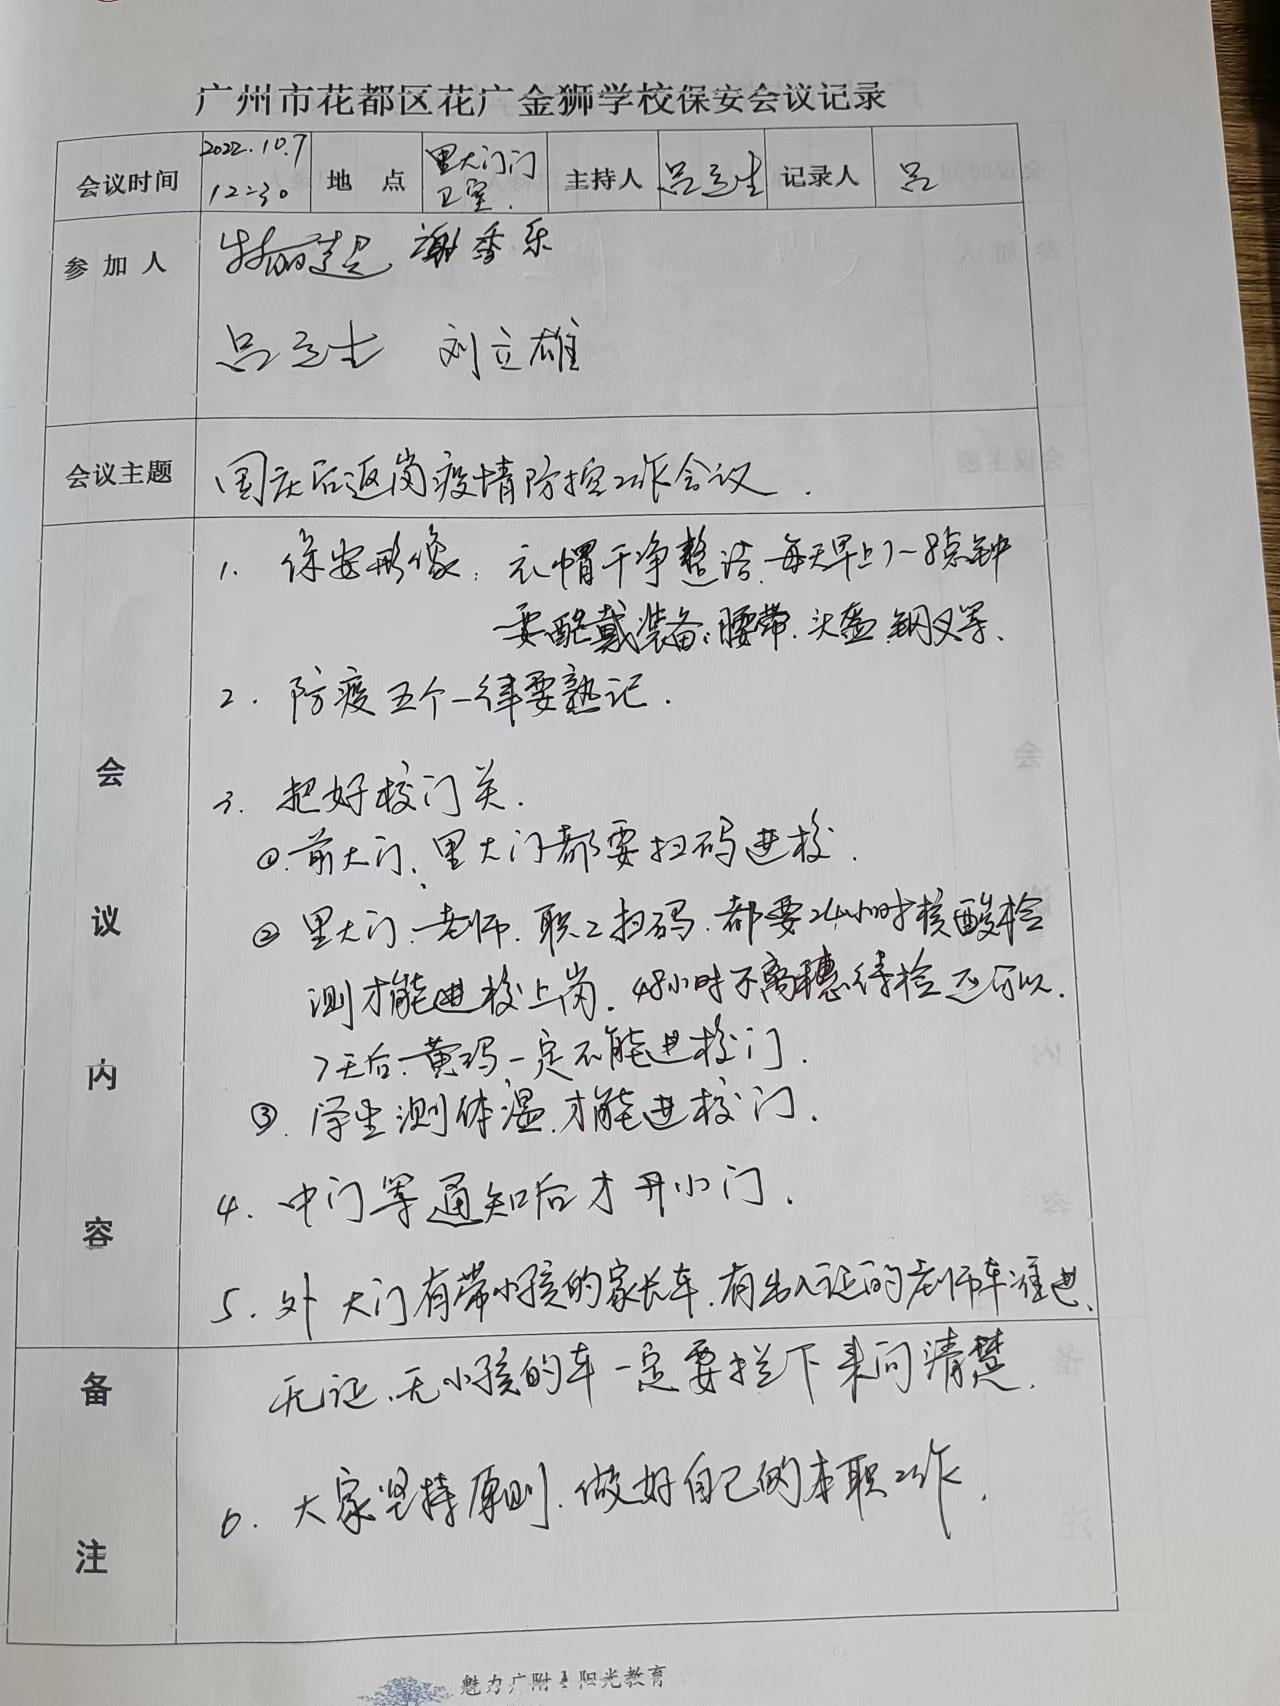 广州市花都区花广金狮学校保安会议记录
会议时间 2022.10.7 12:30 地点 里大门门卫室. 主持人 吕 记录人 吕
参加人 谢香乐
吕 刘立雄
会议主题 国庆后返岗疫情防控工作会议.
会议内容
1. 保安形像: 衣帽干净整洁、每天早上7-8点钟
要配戴装备:腰带、头盔 钢叉等、
2. 防疫五个一律要熟记.
3. 把好校门关.
①前大门、里大门都要扫码进校.
② 里大门、老师、职工扫码、都要24小时核酸检
测才能进校上岗. 48小时不离穗待检还可以.
7天后、黄码一定不能进校门.
③. 学生测体温、才能进校门.
4. 中门等通知后才开小门.
5. 外大门有带小孩的家长车、有出入证的老师车准进、
备注
无证、无小孩的车一定要拦下来问清楚.
6. 大家坚持原则、做好自己的本职工作.
魅力广附 阳光教育